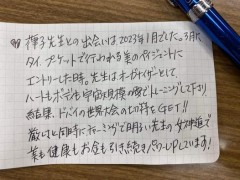 撫子先生との出会いは2023年1月でした。3月に
タイ、プーケットで行われる美のページェントに
エントリーした時。先生はオーガナイザーとして、
ハートもボディも宇宙規模の愛でトレーニングして下さり
結果、ドバイの世界大会の切符をGET!!
厳しいと同時にチャーミングで明るい先生の女神道で
美も健康もお金も引き続きパワーUPしています!